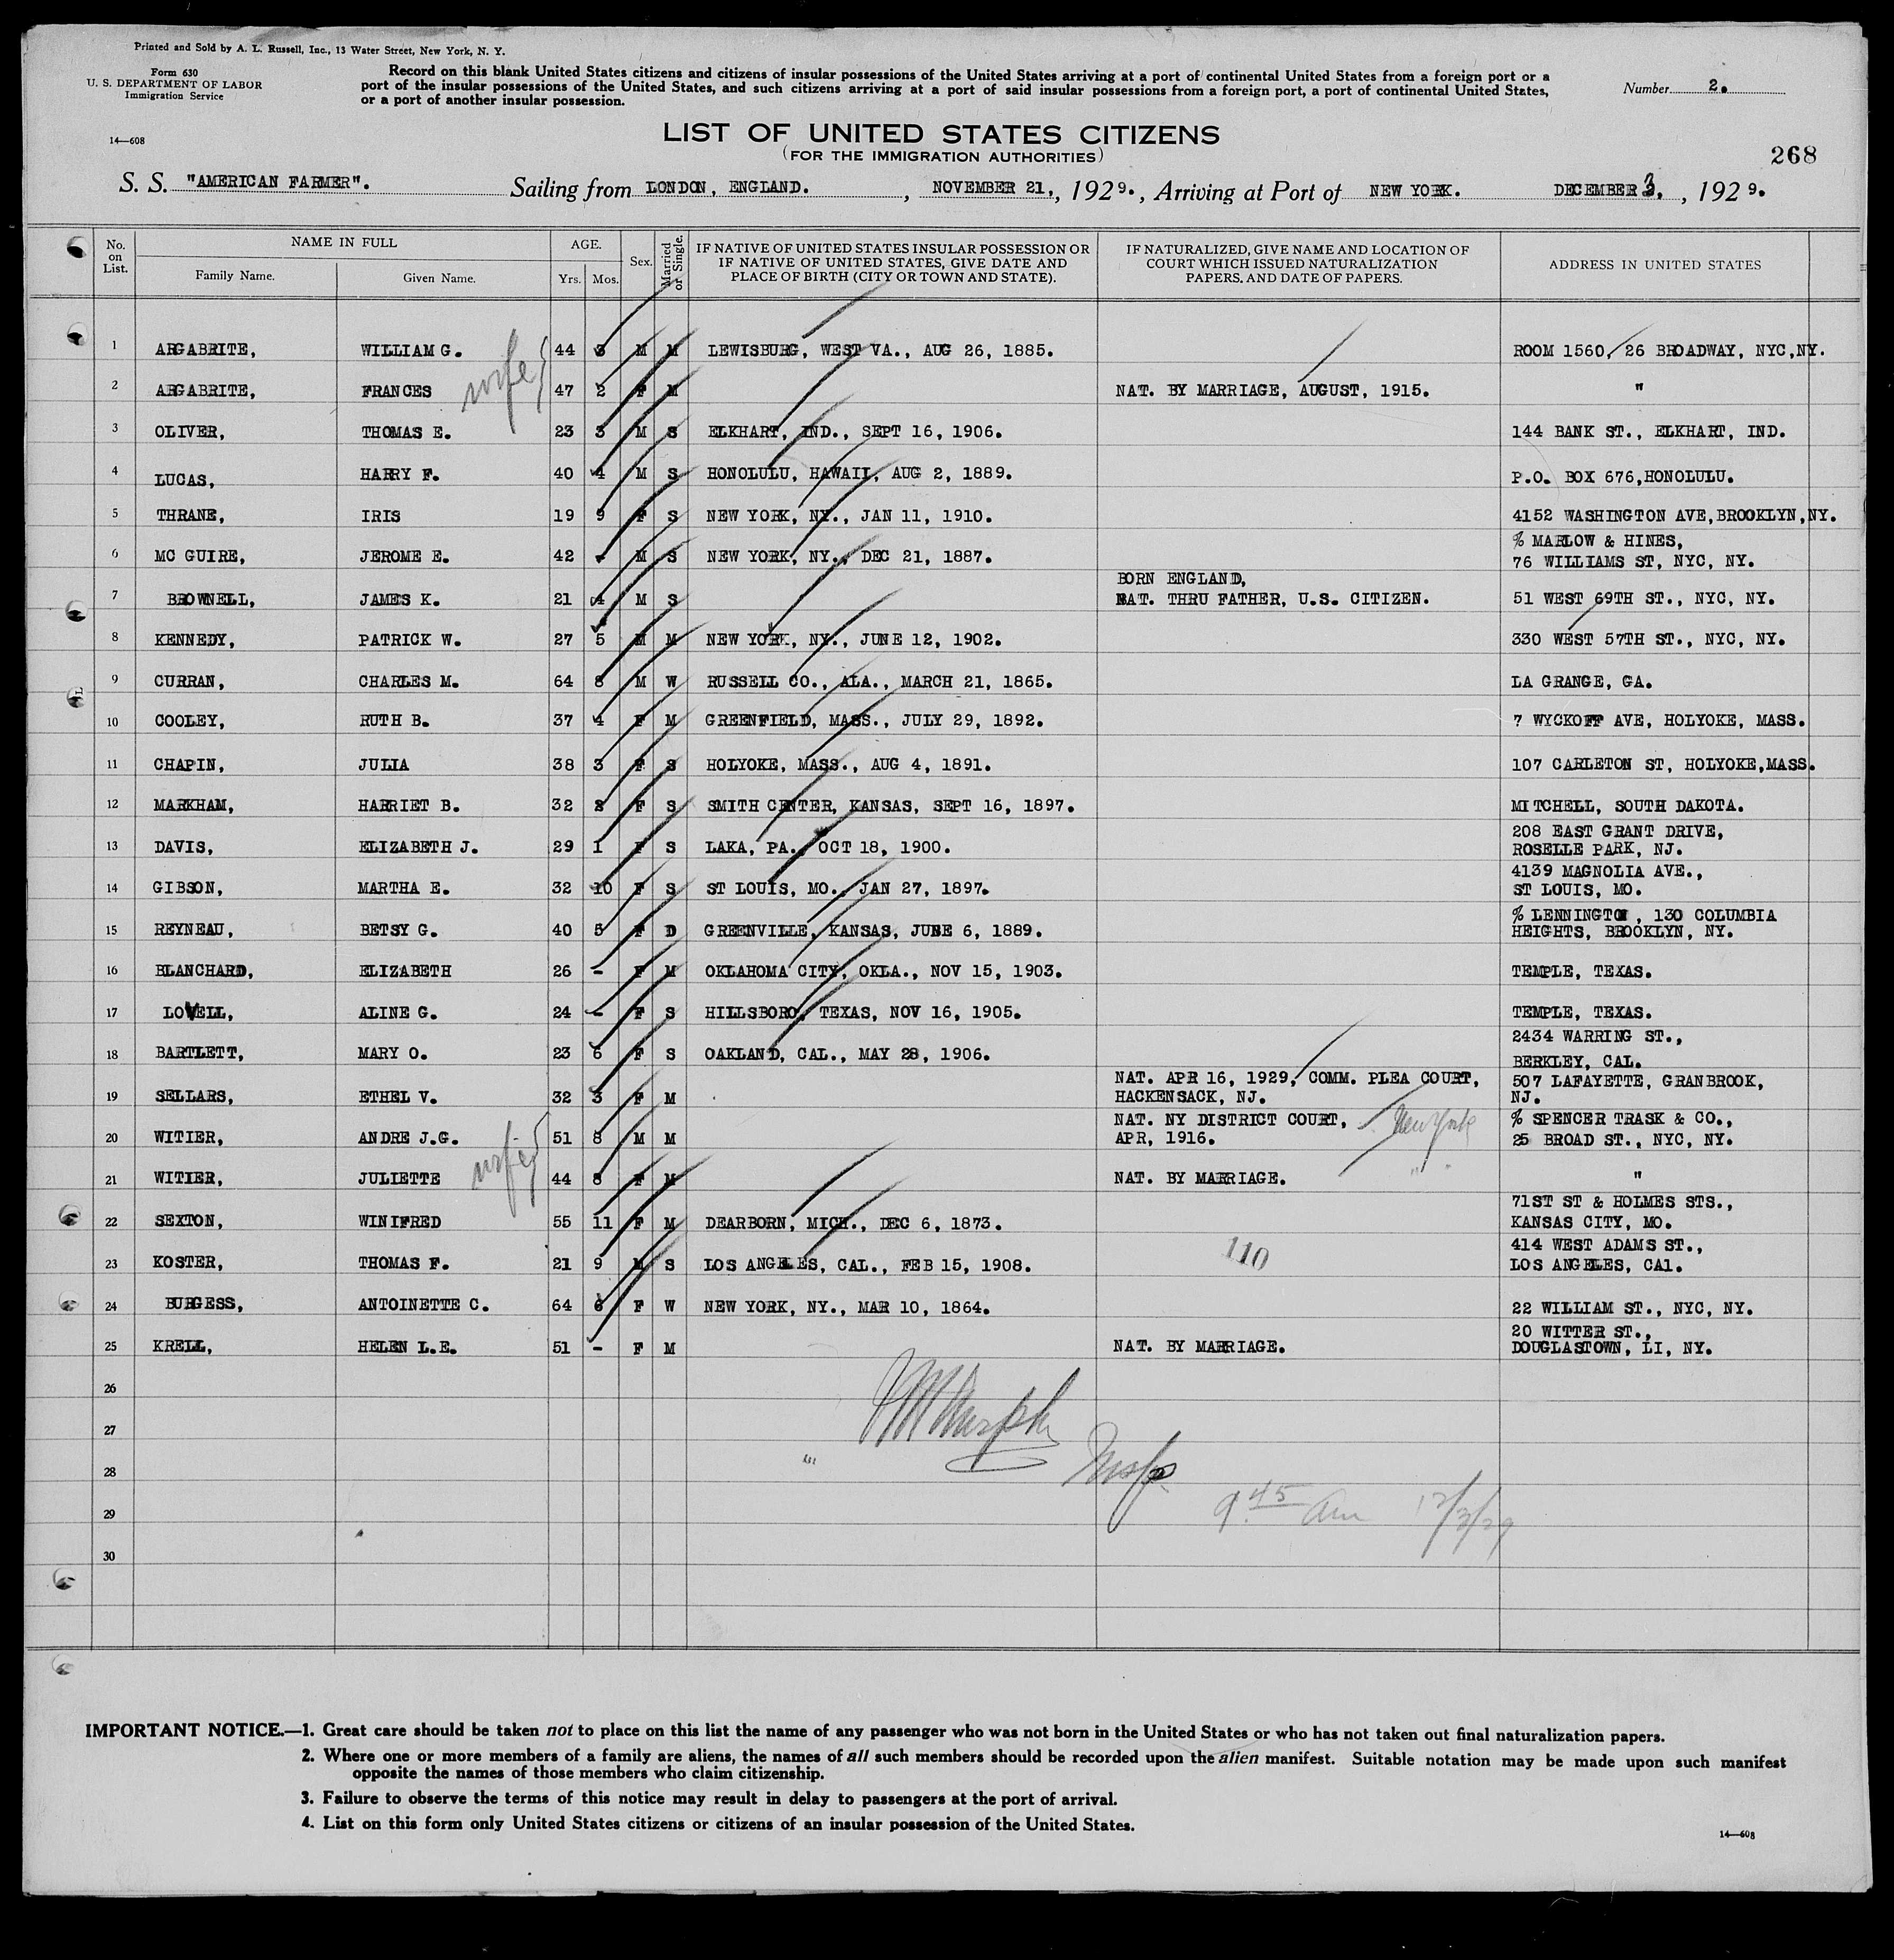 Printed and Sold by A. L. Russell, Inc., 13 Water Street, New York, N. Y.
Form 630
U. S. DEPARTMENT OF LABOR
Immigration Service
14—608
Record on this blank United States citizens and citizens of insular possessions of the United States arriving at a port of continental United States from a foreign port or a
port of the insular possessions of the United States, and such citizens arriving at a port of said insular possessions from a foreign port, a port of continental United States,
or a port of another insular possession.
Number 2.
LIST OF UNITED STATES CITIZENS
(FOR THE IMMIGRATION AUTHORITIES)
268
S. S. "AMERICAN FARMER". Sailing from LONDON, ENGLAND. , NOVEMBER 21, , 1929. , Arriving at Port of NEW YORK. DECEMBER 3. , 1929.
No. on List. NAME IN FULL Family Name. Given Name. AGE. Yrs. Mos. Sex. Married or Single. IF NATIVE OF UNITED STATES INSULAR POSSESSION OR IF NATIVE OF UNITED STATES, GIVE DATE AND PLACE OF BIRTH (CITY OR TOWN AND STATE). IF NATURALIZED, GIVE NAME AND LOCATION OF COURT WHICH ISSUED NATURALIZATION PAPERS. AND DATE OF PAPERS. ADDRESS IN UNITED STATES
1 ARGABRITE, WILLIAM G. 44 3 M M LEWISBURG, WEST VA., AUG 26, 1885. ROOM 1560, 26 BROADWAY, NYC,NY.
wife
2 ARGABRITE, FRANCES 47 2 F M NAT. BY MARRIAGE, AUGUST, 1915. "
3 OLIVER, THOMAS E. 23 3 M S ELKHART, IND., SEPT 16, 1906. 144 BANK ST., ELKHART, IND.
4 LUCAS, HARRY F. 40 4 M S HONOLULU, HAWAII, AUG 2, 1889. P.O. BOX 676,HONOLULU.
5 THRANE, IRIS 19 9 F S NEW YORK, NY., JAN 11, 1910. 4152 WASHINGTON AVE,BROOKLYN,NY.
% MARLOW & HINES,
6 MC GUIRE, JEROME E. 42 - M S NEW YORK, NY., DEC 21, 1887. 76 WILLIAMS ST, NYC, NY.
BORN ENGLAND,
7 BROWNELL, JAMES K. 21 4 M S NAT. THRU FATHER, U.S. CITIZEN. 51 WEST 69TH ST., NYC, NY.
8 KENNEDY, PATRICK W. 27 5 M M NEW YORK, NY., JUNE 12, 1902. 330 WEST 57TH ST., NYC, NY.
9 CURRAN, CHARLES M. 64 8 M W RUSSELL CO., ALA., MARCH 21, 1865. LA GRANGE, GA.
10 COOLEY, RUTH B. 37 4 F M GREENFIELD, MASS., JULY 29, 1892. 7 WYCKOFF AVE, HOLYOKE, MASS.
11 CHAPIN, JULIA 38 3 F S HOLYOKE, MASS., AUG 4, 1891. 107 CARLETON ST, HOLYOKE,MASS.
12 MARKHAM, HARRIET B. 32 2 F S SMITH CENTER, KANSAS, SEPT 16, 1897. MITCHELL, SOUTH DAKOTA.
208 EAST GRANT DRIVE,
13 DAVIS, ELIZABETH J. 29 1 F S LAKA, PA., OCT 18, 1900. ROSELLE PARK, NJ.
4139 MAGNOLIA AVE.,
14 GIBSON, MARTHA E. 32 10 F S ST LOUIS, MO., JAN 27, 1897. ST LOUIS, MO.
% LENNINGTON, 130 COLUMBIA
15 REYNEAU, BETSY G. 40 5 F D GREENVILLE, KANSAS, JUNE 6, 1889. HEIGHTS, BROOKLYN, NY.
16 BLANCHARD, ELIZABETH 26 - F M OKLAHOMA CITY, OKLA., NOV 15, 1903. TEMPLE, TEXAS.
17 LOVELL, ALINE G. 24 - F S HILLSBORO, TEXAS, NOV 16, 1905. TEMPLE, TEXAS.
2434 WARRING ST.,
18 BARTLETT, MARY O. 23 6 F S OAKLAND, CAL., MAY 28, 1906. BERKLEY, CAL.
NAT. APR 16, 1929, COMM. PLEA COURT, 507 LAFAYETTE, GRANBROOK,
19 SELLARS, ETHEL V. 32 3 F M HACKENSACK, NJ. NJ.
NAT. NY DISTRICT COURT, New York % SPENCER TRASK & CO.,
20 WITIER, ANDRE J.G. 51 8 M M APR, 1916. 25 BROAD ST., NYC, NY.
wife
21 WITIER, JULIETTE 44 8 F M NAT. BY MARRIAGE. " " "
71ST ST & HOLMES STS.,
22 SEXTON, WINIFRED 55 11 F M DEARBORN, MICH., DEC 6, 1873. KANSAS CITY, MO.
110 414 WEST ADAMS ST.,
23 KOSTER, THOMAS F. 21 9 M S LOS ANGELES, CAL., FEB 15, 1908. LOS ANGELES, CAl.
24 BURGESS, ANTOINETTE C. 64 6 F W NEW YORK, NY., MAR 10, 1864. 22 WILLIAM ST., NYC, NY.
20 WITTER ST.,
25 KRELL, HELEN L.E. 51 - F M NAT. BY MARRIAGE. DOUGLASTOWN, LI, NY.
26
27
28
29
30
Murphy
Insp
9 45 am 12/3/29
IMPORTANT NOTICE.—1. Great care should be taken not to place on this list the name of any passenger who was not born in the United States or who has not taken out final naturalization papers.
2. Where one or more members of a family are aliens, the names of all such members should be recorded upon the alien manifest. Suitable notation may be made upon such manifest
opposite the names of those members who claim citizenship.
3. Failure to observe the terms of this notice may result in delay to passengers at the port of arrival.
4. List on this form only United States citizens or citizens of an insular possession of the United States.
14—608